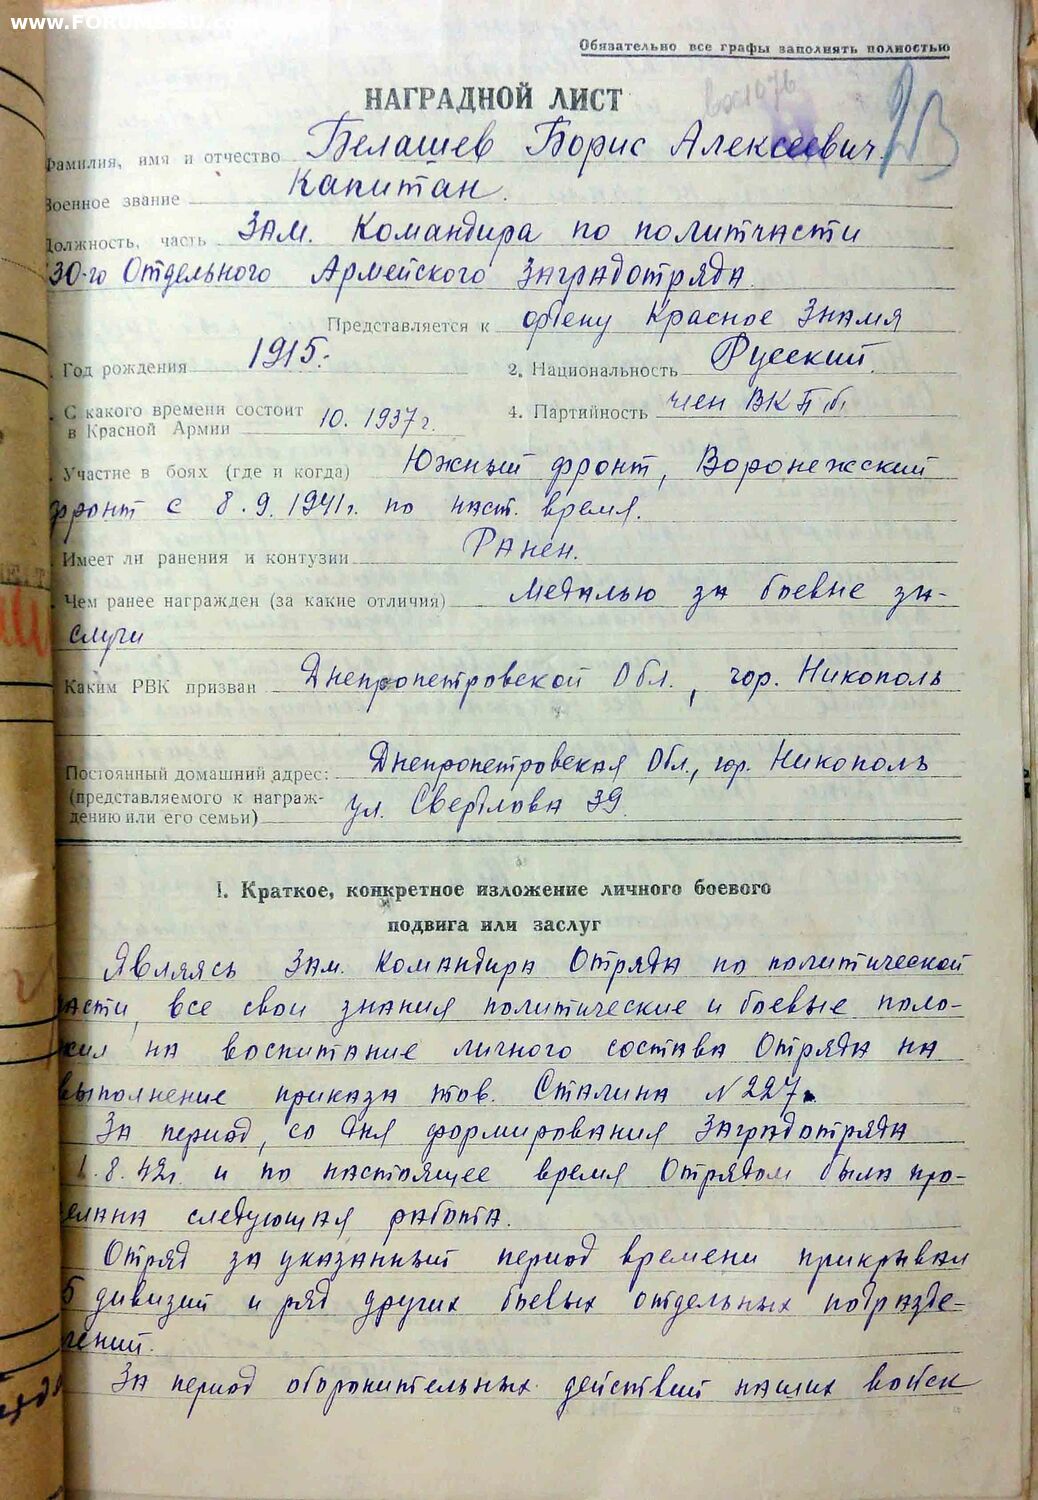 www.FORUM.SU.com
Обязательно все графы заполнять полностью
НАГРАДНОЙ ЛИСТ
Фамилия, имя и отчество Белашев Борис Алексеевич.
Военное звание Капитан.
Должность, часть Зам. Командира по политчасти
30-го Отдельного Армейского Заградотряда
Представляется к ордену Красное Знамя
Год рождения 1915г. 2. Национальность Русский.
С какого времени состоит
в Красной Армии 10.1937г. 4. Партийность член ВКПб
Участие в боях (где и когда) Южный фронт, Воронежский
фронт с 8.9.1941г. по наст. время.
Имеет ли ранения и контузии Ранен.
Чем ранее награжден (за какие отличия) Медалью за боевые за-
слуги
Каким РВК призван Днепропетровской Обл., гор. Никополь
Постоянный домашний адрес: Днепропетровская Обл., гор. Никополь
(представляемого к награж-
дению или его семьи) ул. Свердлова 39.
I. Краткое, конкретное изложение личного боевого
подвига или заслуг
Являясь Зам. Командира Отряда по политической
части, все свои знания политические и боевые поло-
жил на воспитание личного состава Отряда на
выполнение приказа тов. Сталина №227.
За период, со дня формирования Заградотряда
1.8.42г. и по настоящее время Отрядом была про-
делана следующая работа.
Отряд за указанный период времени прикрывал
5 дивизий и ряд других боевых отдельных подразде-
лений.
За период оборонительных действий наших войск